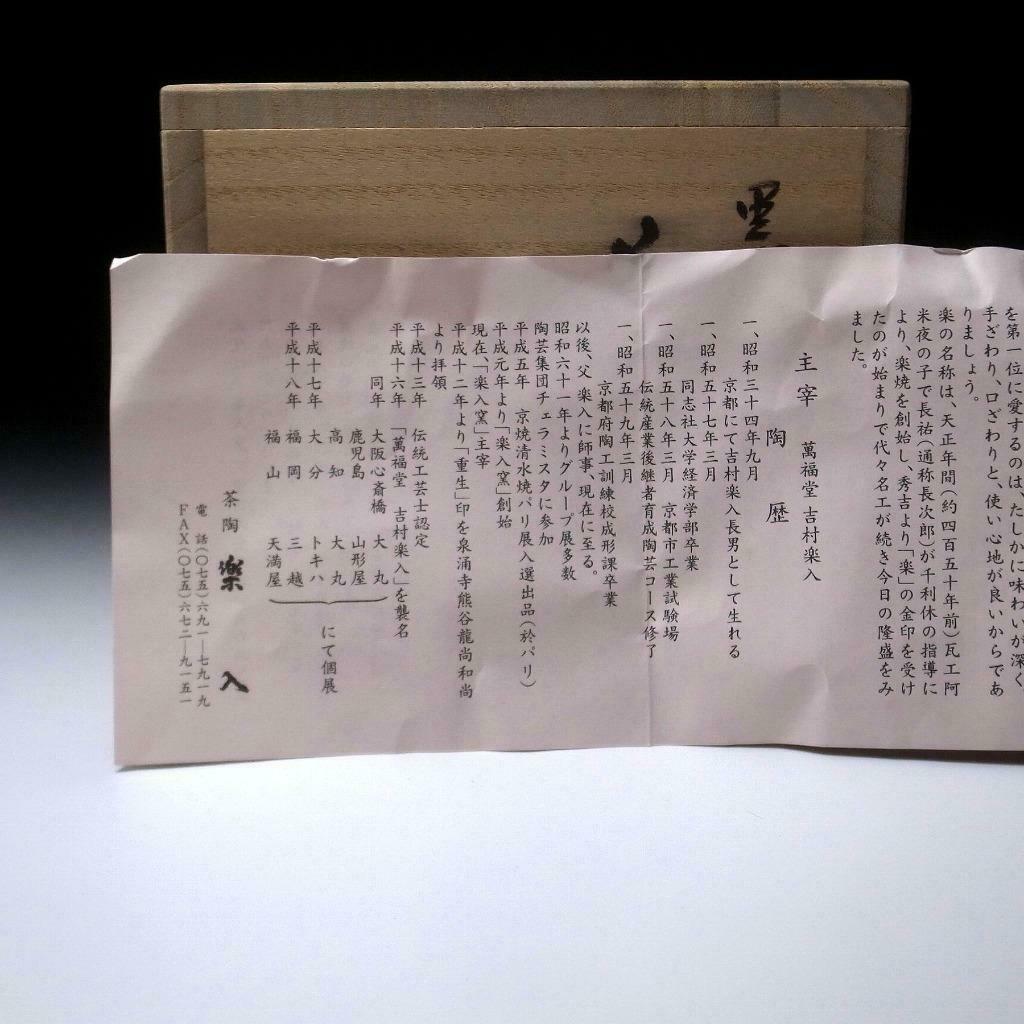 黒
を第一位に愛するのは、たしかに味わいが深く
手ざわり、口ざわりと、使い心地が良いからであ
りましょう。
楽の名称は、天正年間(約四百五十年前)瓦工阿
米夜の子で長祐(通称長次郎)が千利休の指導に
より、楽焼を創始し、秀吉より「楽」の金印を受け
たのが始まりで代々名工が続き今日の隆盛をみ
ました。
主宰 萬福堂 吉村楽入
陶歴
一、昭和三十四年九月
京都にて吉村楽入長男として生れる
一、昭和五十七年三月
同志社大学経済学部卒業
一、昭和五十八年三月 京都市工業試験場
伝統産業後継者育成陶芸コース修了
一、昭和五十九年三月
京都府陶工訓練校成形課卒業
以後、父 楽入に師事、現在に至る。
昭和六十一年よりグループ展多数
陶芸集団チェラミスタに参加
平成五年 京焼清水焼パリ展入選出品(於パリ)
平成元年より「楽入窯」創始
現在、「楽入窯」主宰
平成十二年より「重生」印を泉涌寺熊谷龍尚和尚
より拝領
平成十三年 伝統工芸士認定
平成十六年 「萬福堂 吉村楽入」を襲名
同年 大阪心斎橋 大丸
鹿児島 山形屋
高知 大丸
平成十七年 大分 トキハ
平成十八年 福岡 三越
福山 天満屋
にて個展
茶陶 楽入
電話(〇七五)六九一―七九一九
FAX(〇七五)六七二―九一五一